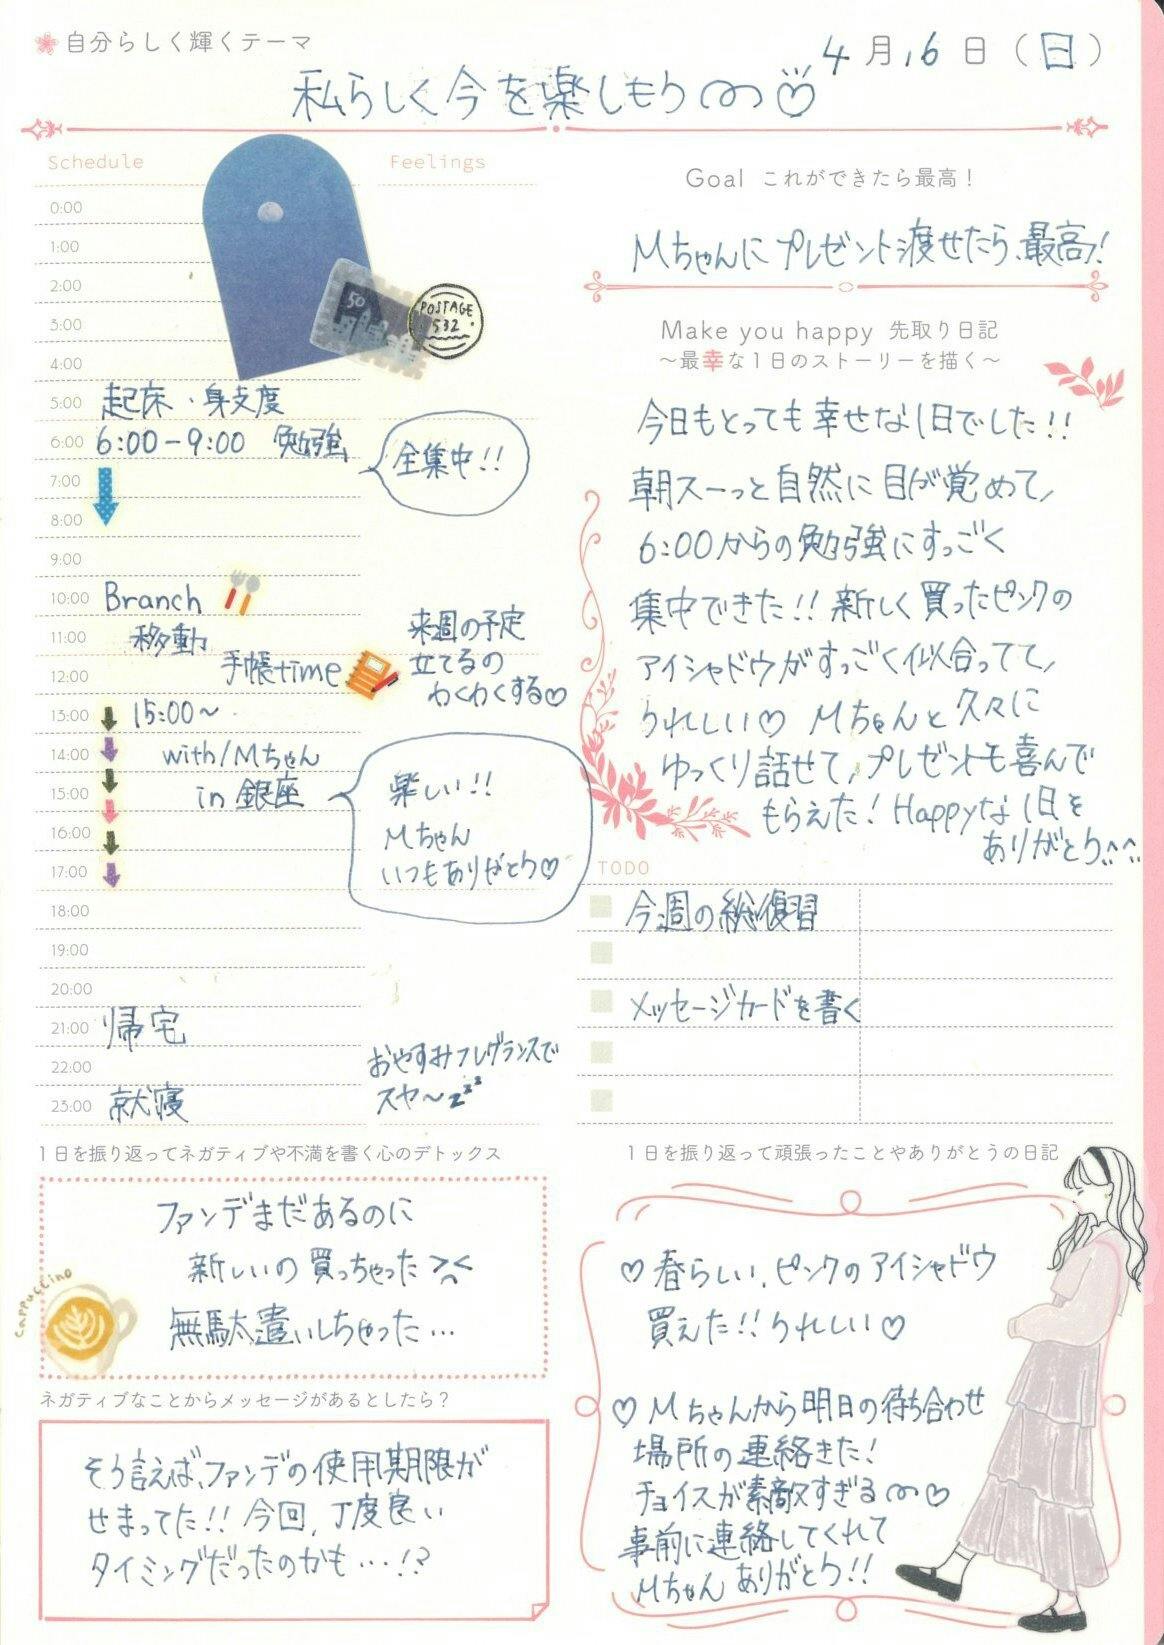 自分らしく輝くテーマ
4月16日(日)
私らしく今を楽しもう♡
Schedule
Feelings
0:00
1:00
2:00
3:00
4:00
50
POSTAGE
532
5:00 起床・身支度
6:00 6:00-9:00 勉強
全集中!!
7:00
8:00
9:00
10:00 Branch
11:00 移動
12:00 手帳time
来週の予定
立てるの
わくわくする♡
13:00 15:00〜
14:00 with/Mちゃん
15:00 in 銀座
楽しい!!
Mちゃん
いつもありがとう♡
16:00
17:00
18:00
19:00
20:00
21:00 帰宅
22:00
おやすみフレグランスで
スヤ〜zzz
23:00 就寝
Goal これができたら最高!
Mちゃんにプレゼント渡せたら、最高!
Make you happy 先取り日記
〜最幸な1日のストーリーを描く〜
今日もとっても幸せな1日でした!!
朝スーっと自然に目が覚めて、
6:00からの勉強にすっごく
集中できた!!新しく買ったピンクの
アイシャドウがすっごく似合ってて、
うれしい♡ Mちゃんと久々に
ゆっくり話せて、プレゼントも喜んで
もらえた!Happyな1日を
ありがとう^^
TODO
今週の総復習
メッセージカードを書く
1日を振り返ってネガティブや不満を書く心のデトックス
ファンデまだあるのに
新しいの買っちゃった
無駄遣いしちゃった…
cappuccino
ネガティブなことからメッセージがあるとしたら?
そう言えば、ファンデの使用期限が
せまってた!!今回、丁度良い
タイミングだったのかも…!?
1日を振り返って頑張ったことやありがとうの日記
♡春らしい、ピンクのアイシャドウ
買えた!!うれしい♡
♡Mちゃんから明日の待ち合わせ
場所の連絡きた!
チョイスが素敵すぎる♡
事前に連絡してくれて
Mちゃんありがとう!!